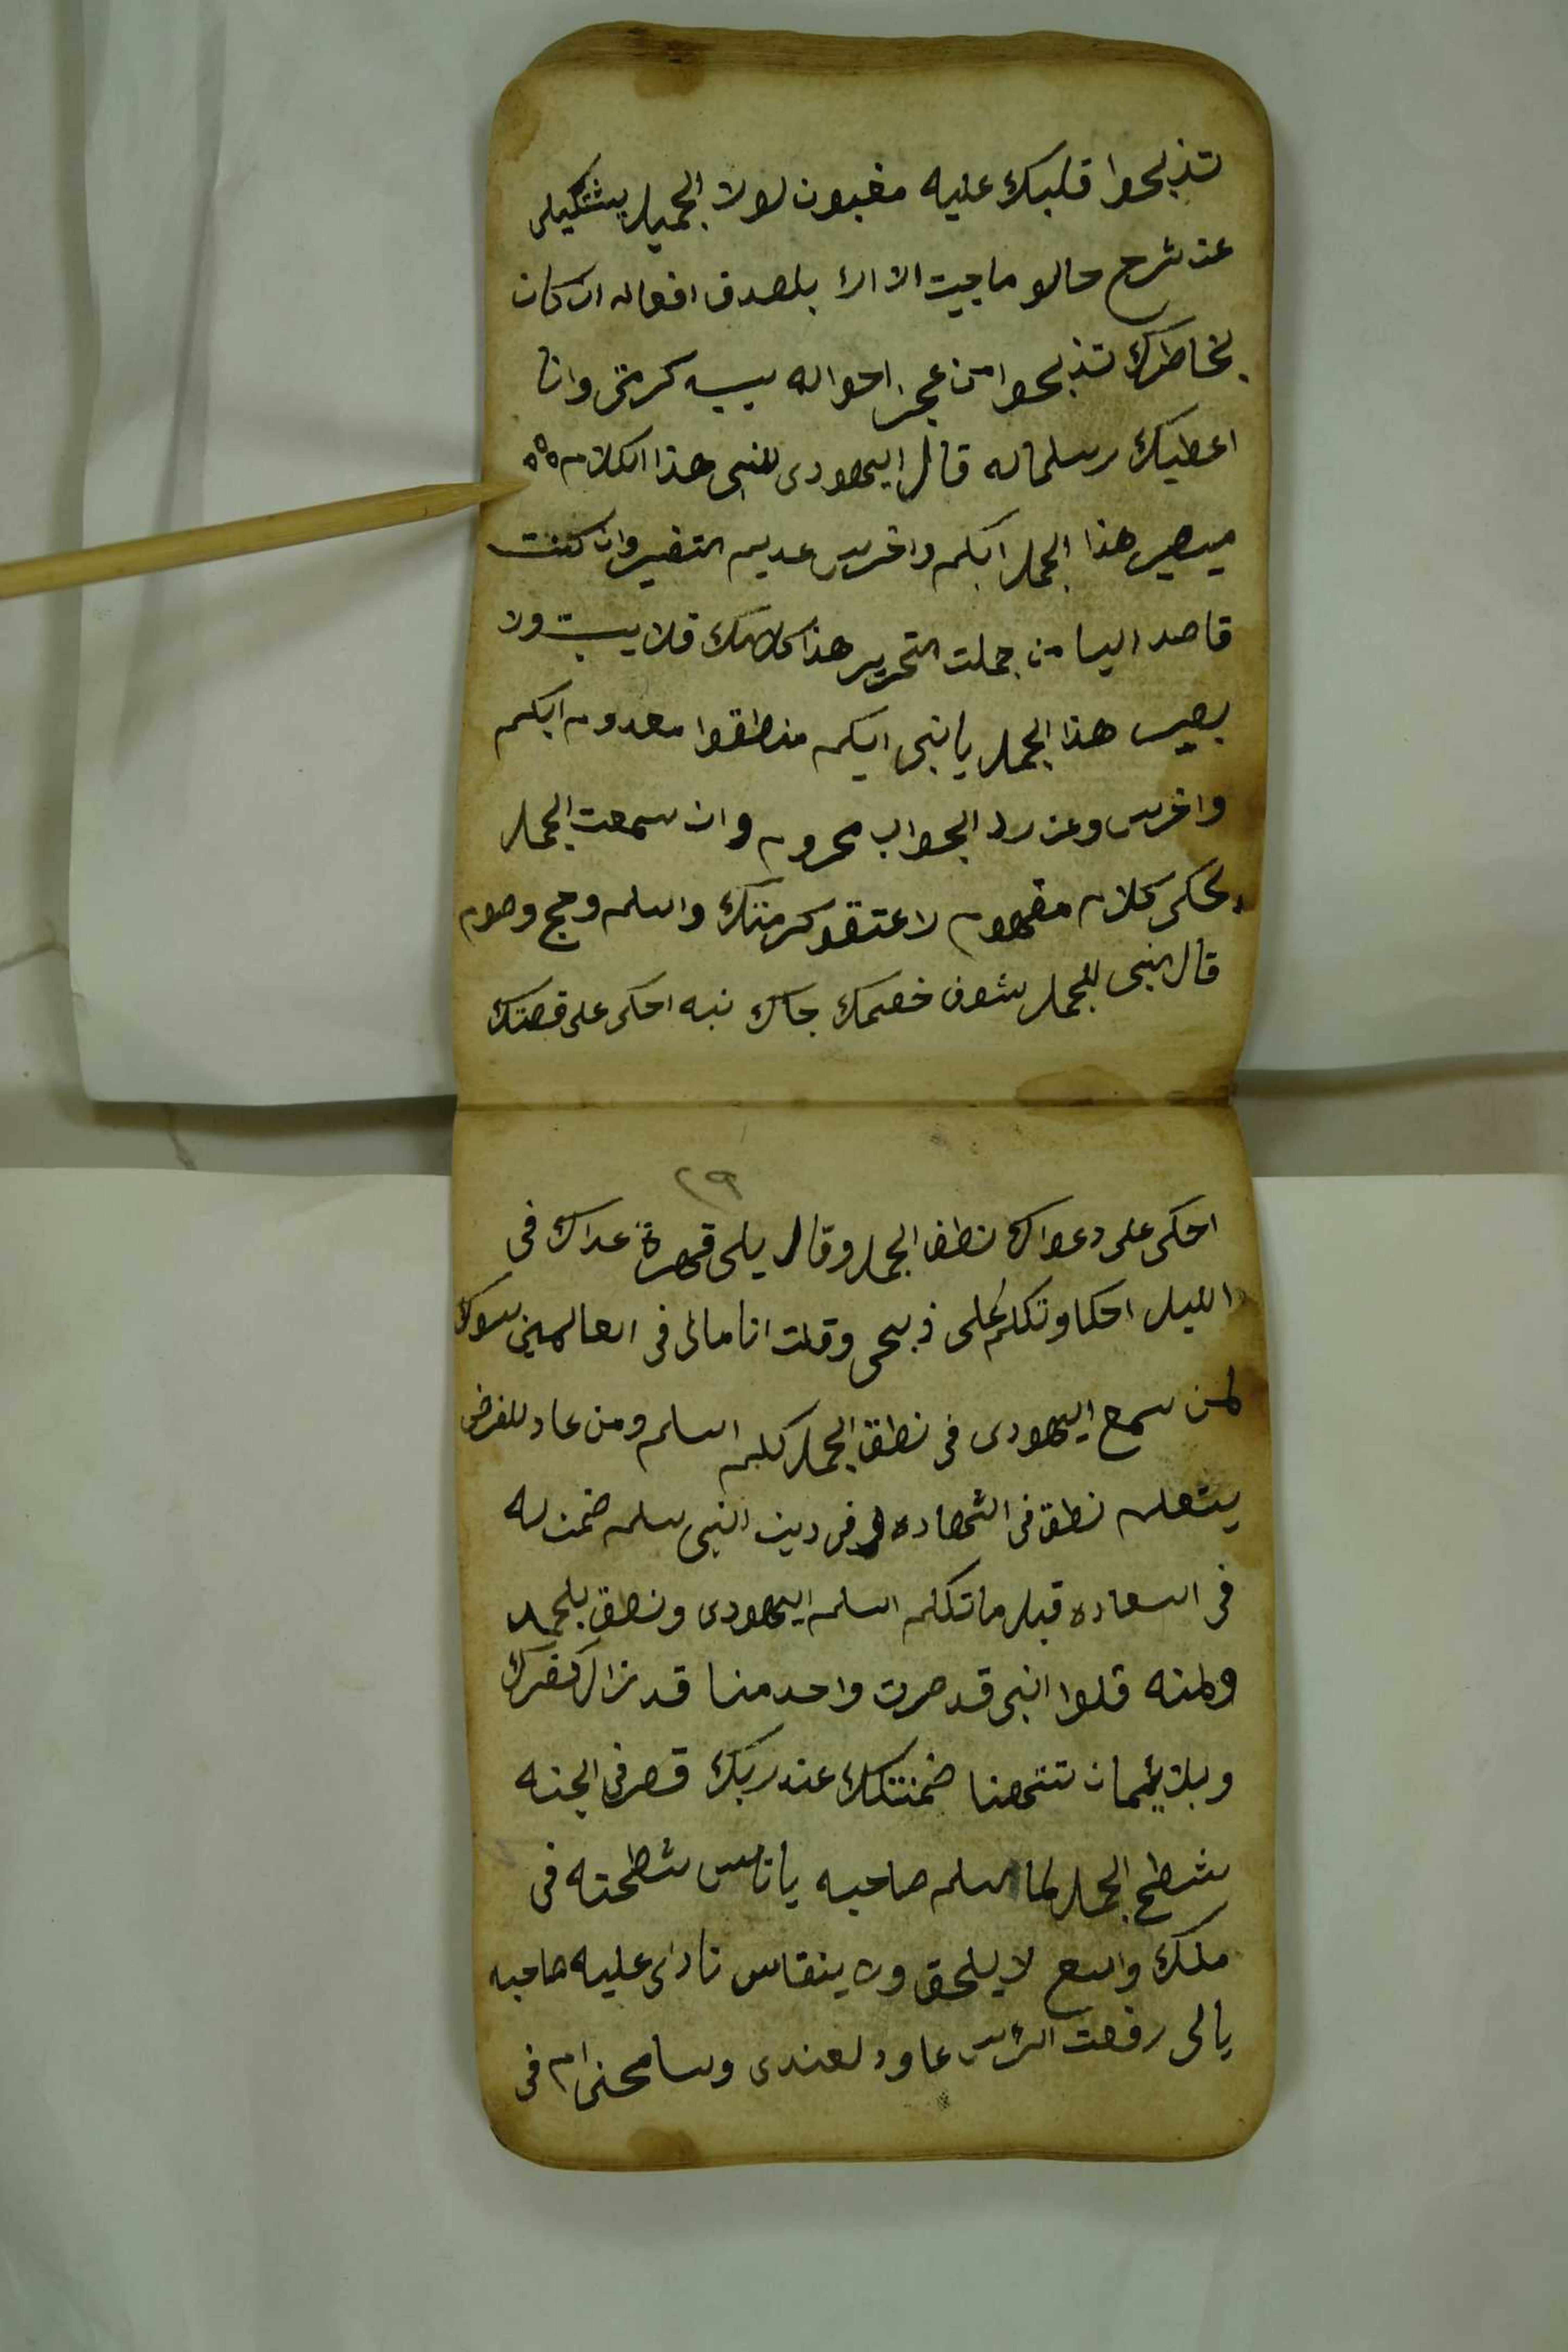 تذبحوا قلبك عليه مغبون لولا الجميل يشتكيلى
عن شرح حالو ما جيت الا الا بلصدق افعاله ان كان
بخاطرك تذبحوا من عجز احواله يبيه كرمتى وانا
اعطيك رسلماله قال اليهودى للنبى هذا الكلام
ميصير هذا الجمل ابكم واخرس عديم التفسير وان كنت
قاصد الينا من جملت التحرير هذا كلامك فلا يبت ولا
بصير هذا الجمل يا نبى ابكم منطقوا معدوم ابكم
واخرس وعن رد الجواب محروم وان سمعت الجمل
يحكى كلام مفهوم لاعتقو كرمتك واسلم وحج وصوم
قال النبى للجمل شوف خصمك جاك نبه احكى على قصتك
٢٩
احكى على دعواك نطق الجمل وقال يلى قهرة عداك فى
الليل احكا وتكلم على ذبحى وقلت انا مالى فى العالمين سواك
لمن سمع اليهودى فى نطق الجمل كلمه اسلم ومن عاد للفرض
يتعلم نطق فى الشهاده وفى دين النبى سلم ضمن له
فى السعاده قبل ما تكلم اسلم اليهودى ونطق بلجمل
ولمنه قلوا النبى قد صرت واحد منا قد زال كفرك
وبلايمان تتهنا ضمنتلك عند ربك قصر فى الجنه
شطح الجمل لما اسلم صاحبه يا ناس شطحته فى
ملك واسع لا يلحق ولا ينقاس نادى عليه صاحبه
يالى رفعت الراس عاود لعندى وسامحنى ام فى